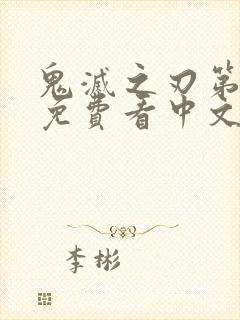 鬼滅之刃第
免費看中文
李彬